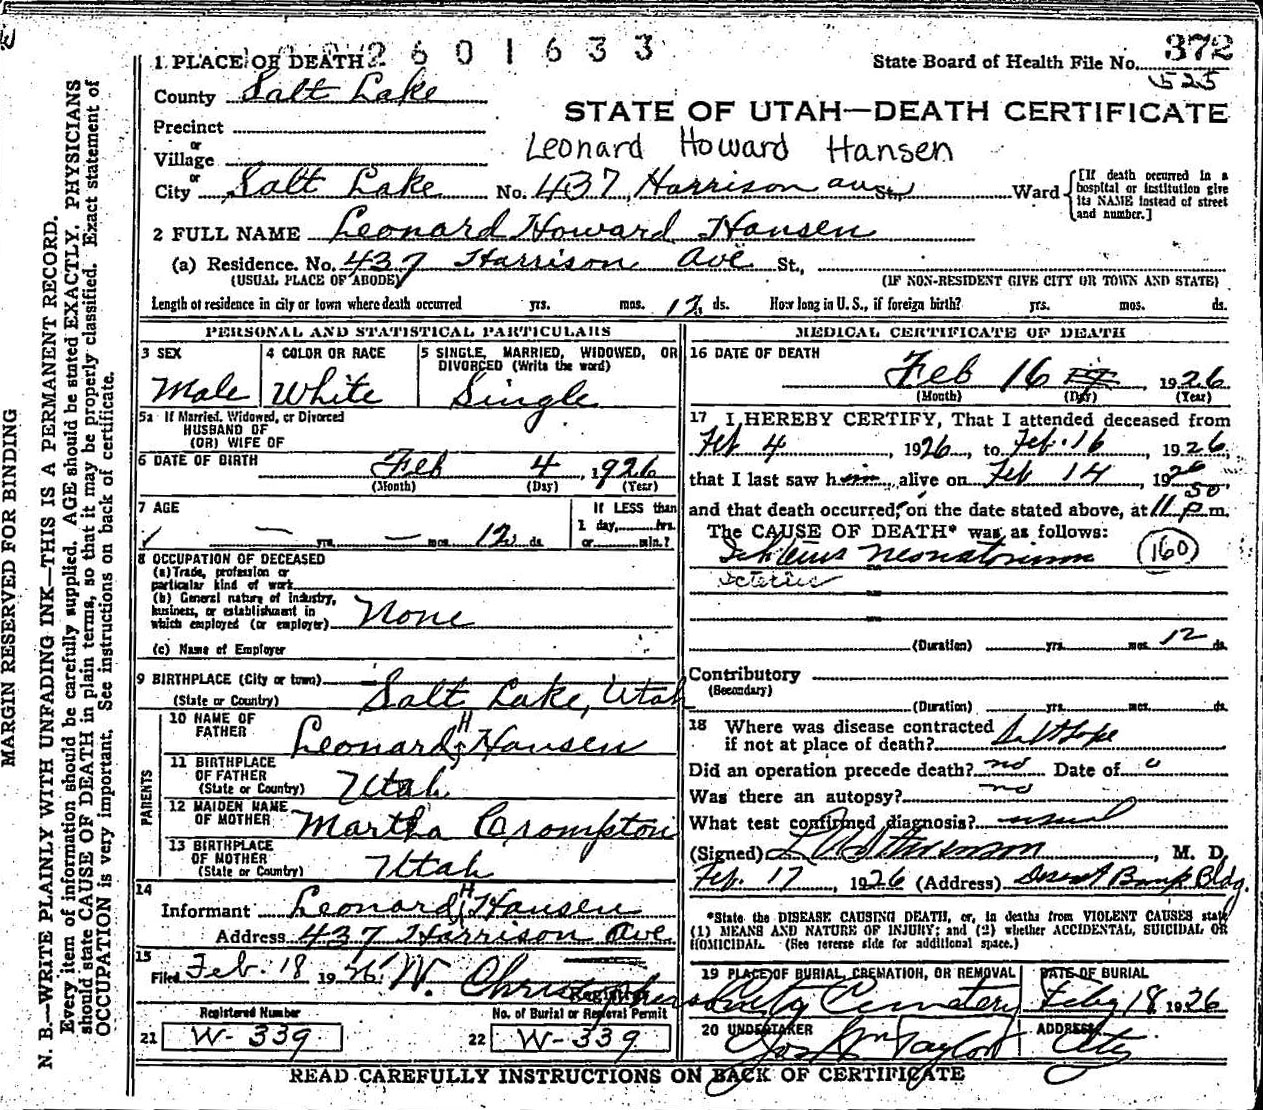 2601633
1 PLACE OF DEATH
State Board of Health File No. 372
525
County Salt Lake
STATE OF UTAH—DEATH CERTIFICATE
Precinct
or
Village
Leonard Howard Hansen
or
City Salt Lake No. 437 Harrison av St., Ward
[If death occurred in a hospital or institution give its NAME instead of street and number.]
2 FULL NAME Leonard Howard Hansen
(a) Residence. No. 437 Harrison Ave St.,
(USUAL PLACE OF ABODE) (IF NON-RESIDENT GIVE CITY OR TOWN AND STATE)
Length of residence in city or town where death occurred yrs. mos. 12 ds. How long in U. S., if foreign birth? yrs. mos. ds.
PERSONAL AND STATISTICAL PARTICULARS
3 SEX
Male
4 COLOR OR RACE
White
5 SINGLE, MARRIED, WIDOWED, OR DIVORCED (Write the word)
Single
5a If Married, Widowed, or Divorced
HUSBAND OF
(OR) WIFE OF
6 DATE OF BIRTH Feb 4, 1926
(Month) (Day) (Year)
7 AGE
If LESS than
1 day, hrs.
— yrs. — mos. 12 ds. or min.?
8 OCCUPATION OF DECEASED
(a) Trade, profession or
particular kind of work
(b) General nature of industry,
business, or establishment in
which employed (or employer) None
(c) Name of Employer
9 BIRTHPLACE (City or town)
(State or Country) Salt Lake, Utah
PARENTS
10 NAME OF FATHER Leonard H Hansen
11 BIRTHPLACE OF FATHER
(State or Country) Utah
12 MAIDEN NAME OF MOTHER Martha Crompton
13 BIRTHPLACE OF MOTHER
(State or Country) Utah
14
Informant Leonard H Hansen
Address 437 Harrison Ave.
15
Filed Feb. 18 1926 W. Christophers
Registrar
Registered Number
21 W-339
No. of Burial or Removal Permit
22 W-339
MEDICAL CERTIFICATE OF DEATH
16 DATE OF DEATH
Feb 16, 1926
(Month) (Day) (Year)
17 I HEREBY CERTIFY, That I attended deceased from
Feb 4, 1926, to Feb. 16, 1926,
that I last saw him alive on Feb 14, 1926,
and that death occurred, on the date stated above, at 11 50 p m.
The CAUSE OF DEATH* was as follows:
Neonatorum (160)
Icterus
(Duration) yrs. mos. 12 ds.
Contributory
(Secondary)
(Duration) yrs. mos. ds.
18 Where was disease contracted
if not at place of death? Salt Lake
Did an operation precede death? no Date of 0
Was there an autopsy? no
What test confirmed diagnosis? usual
(Signed) L Stevenson, M. D.
Feb. 17, 1926 (Address) Deseret Bank Bldg.
*State the DISEASE CAUSING DEATH, or, in deaths from VIOLENT CAUSES state
(1) MEANS AND NATURE OF INJURY; and (2) whether ACCIDENTAL, SUICIDAL OR
HOMICIDAL. (See reverse side for additional space.)
19 PLACE OF BURIAL, CREMATION, OR REMOVAL
City Cemetery
DATE OF BURIAL
Feby 18 1926
20 UNDERTAKER
Jos Wm Taylor
ADDRESS
City
READ CAREFULLY INSTRUCTIONS ON BACK OF CERTIFICATE
MARGIN RESERVED FOR BINDING
N. B.—WRITE PLAINLY WITH UNFADING INK—THIS IS A PERMANENT RECORD.
Every item of information should be carefully supplied. AGE should be stated EXACTLY. PHYSICIANS
should state CAUSE OF DEATH in plain terms, so that it may be properly classified. Exact statement of
OCCUPATION is very important. See instructions on back of certificate.